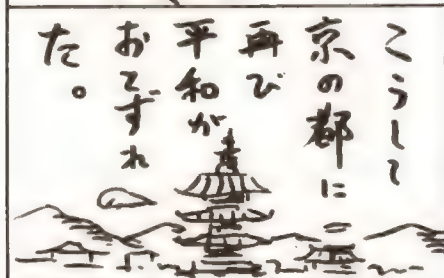 こうして
京の都に
再び
平和が
おとずれ
た。